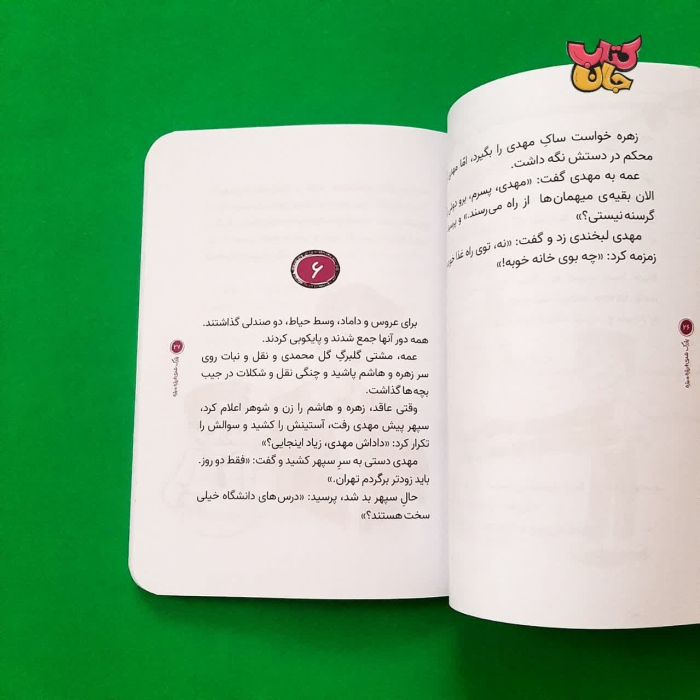 کتاب
جان
زهره خواست ساکِ مهدی را بگیرد، امّا
محکم در دستش نگه داشت.
عمه به مهدی گفت: «مهدی، پسرم، برو
الان بقیه‌ی میهمان‌ها از راه می‌رسند.» و
گرسنه نیستی؟»
مهدی لبخندی زد و گفت: «نه، توی راه غذا
زمزمه کرد: «چه بوی خانه خوبه!»
۲۶
۶
برای عروس و داماد، وسط حیاط، دو صندلی گذاشتند.
همه دور آنها جمع شدند و پایکوبی کردند.
عمه، مشتی گلبرگِ گل محمدی و نقل و نبات روی
سر زهره و هاشم پاشید و چنگی نقل و شکلات در جیب
بچه‌ها گذاشت.
وقتی عاقد، زهره و هاشم را زن و شوهر اعلام کرد،
سپهر پیش مهدی رفت، آستینش را کشید و سوالش را
تکرار کرد: «داداش مهدی، زیاد اینجایی؟»
مهدی دستی به سرِ سپهر کشید و گفت: «فقط دو روز.
باید زودتر برگردم تهران.»
حالِ سپهر بد شد، پرسید: «درس‌های دانشگاه خیلی
سخت هستند؟»
۲۷